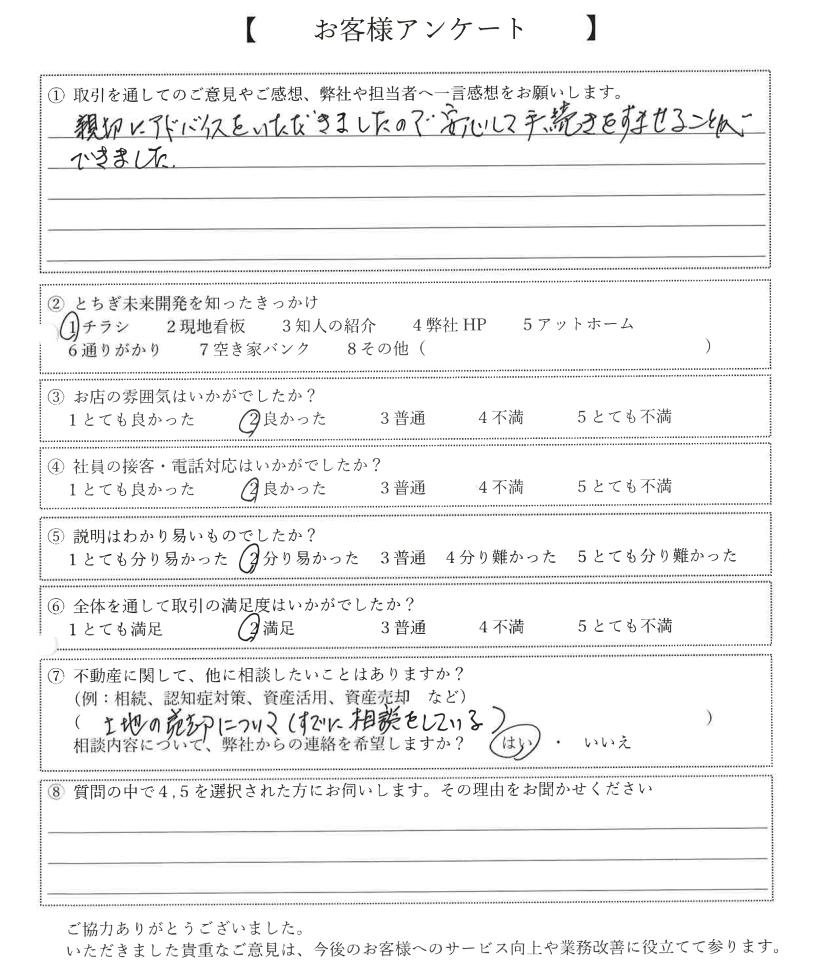 【　お客様アンケート　】
① 取引を通してのご意見やご感想、弊社や担当者へ一言感想をお願いします。
親切にアドバイスをいただきましたので安心して手続きをすませることが
できました.
② とちぎ未来開発を知ったきっかけ
1チラシ　2現地看板　3知人の紹介　4弊社HP　5アットホーム
6通りがかり　7空き家バンク　8その他（　）
③ お店の雰囲気はいかがでしたか？
1とても良かった　2良かった　3普通　4不満　5とても不満
④ 社員の接客・電話対応はいかがでしたか？
1とても良かった　2良かった　3普通　4不満　5とても不満
⑤ 説明はわかり易いものでしたか？
1とても分り易かった　2分り易かった　3普通　4分り難かった　5とても分り難かった
⑥ 全体を通して取引の満足度はいかがでしたか？
1とても満足　2満足　3普通　4不満　5とても不満
⑦ 不動産に関して、他に相談したいことはありますか？
（例：相続、認知症対策、資産活用、資産売却　など）
（ 土地の売却について（すでに相談をしている） ）
相談内容について、弊社からの連絡を希望しますか？　はい　・　いいえ
⑧ 質問の中で4,5を選択された方にお伺いします。その理由をお聞かせください
ご協力ありがとうございました。
いただきました貴重なご意見は、今後のお客様へのサービス向上や業務改善に役立てて参ります。